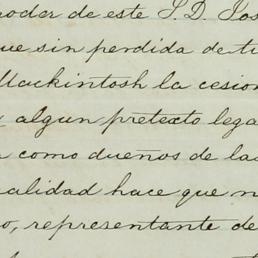 poder de este S. D. Jos
que sin perdida de ti
Mackintosh la cesion
algun pretexto lega
como dueños de las
alidad hace que n
o, representante de